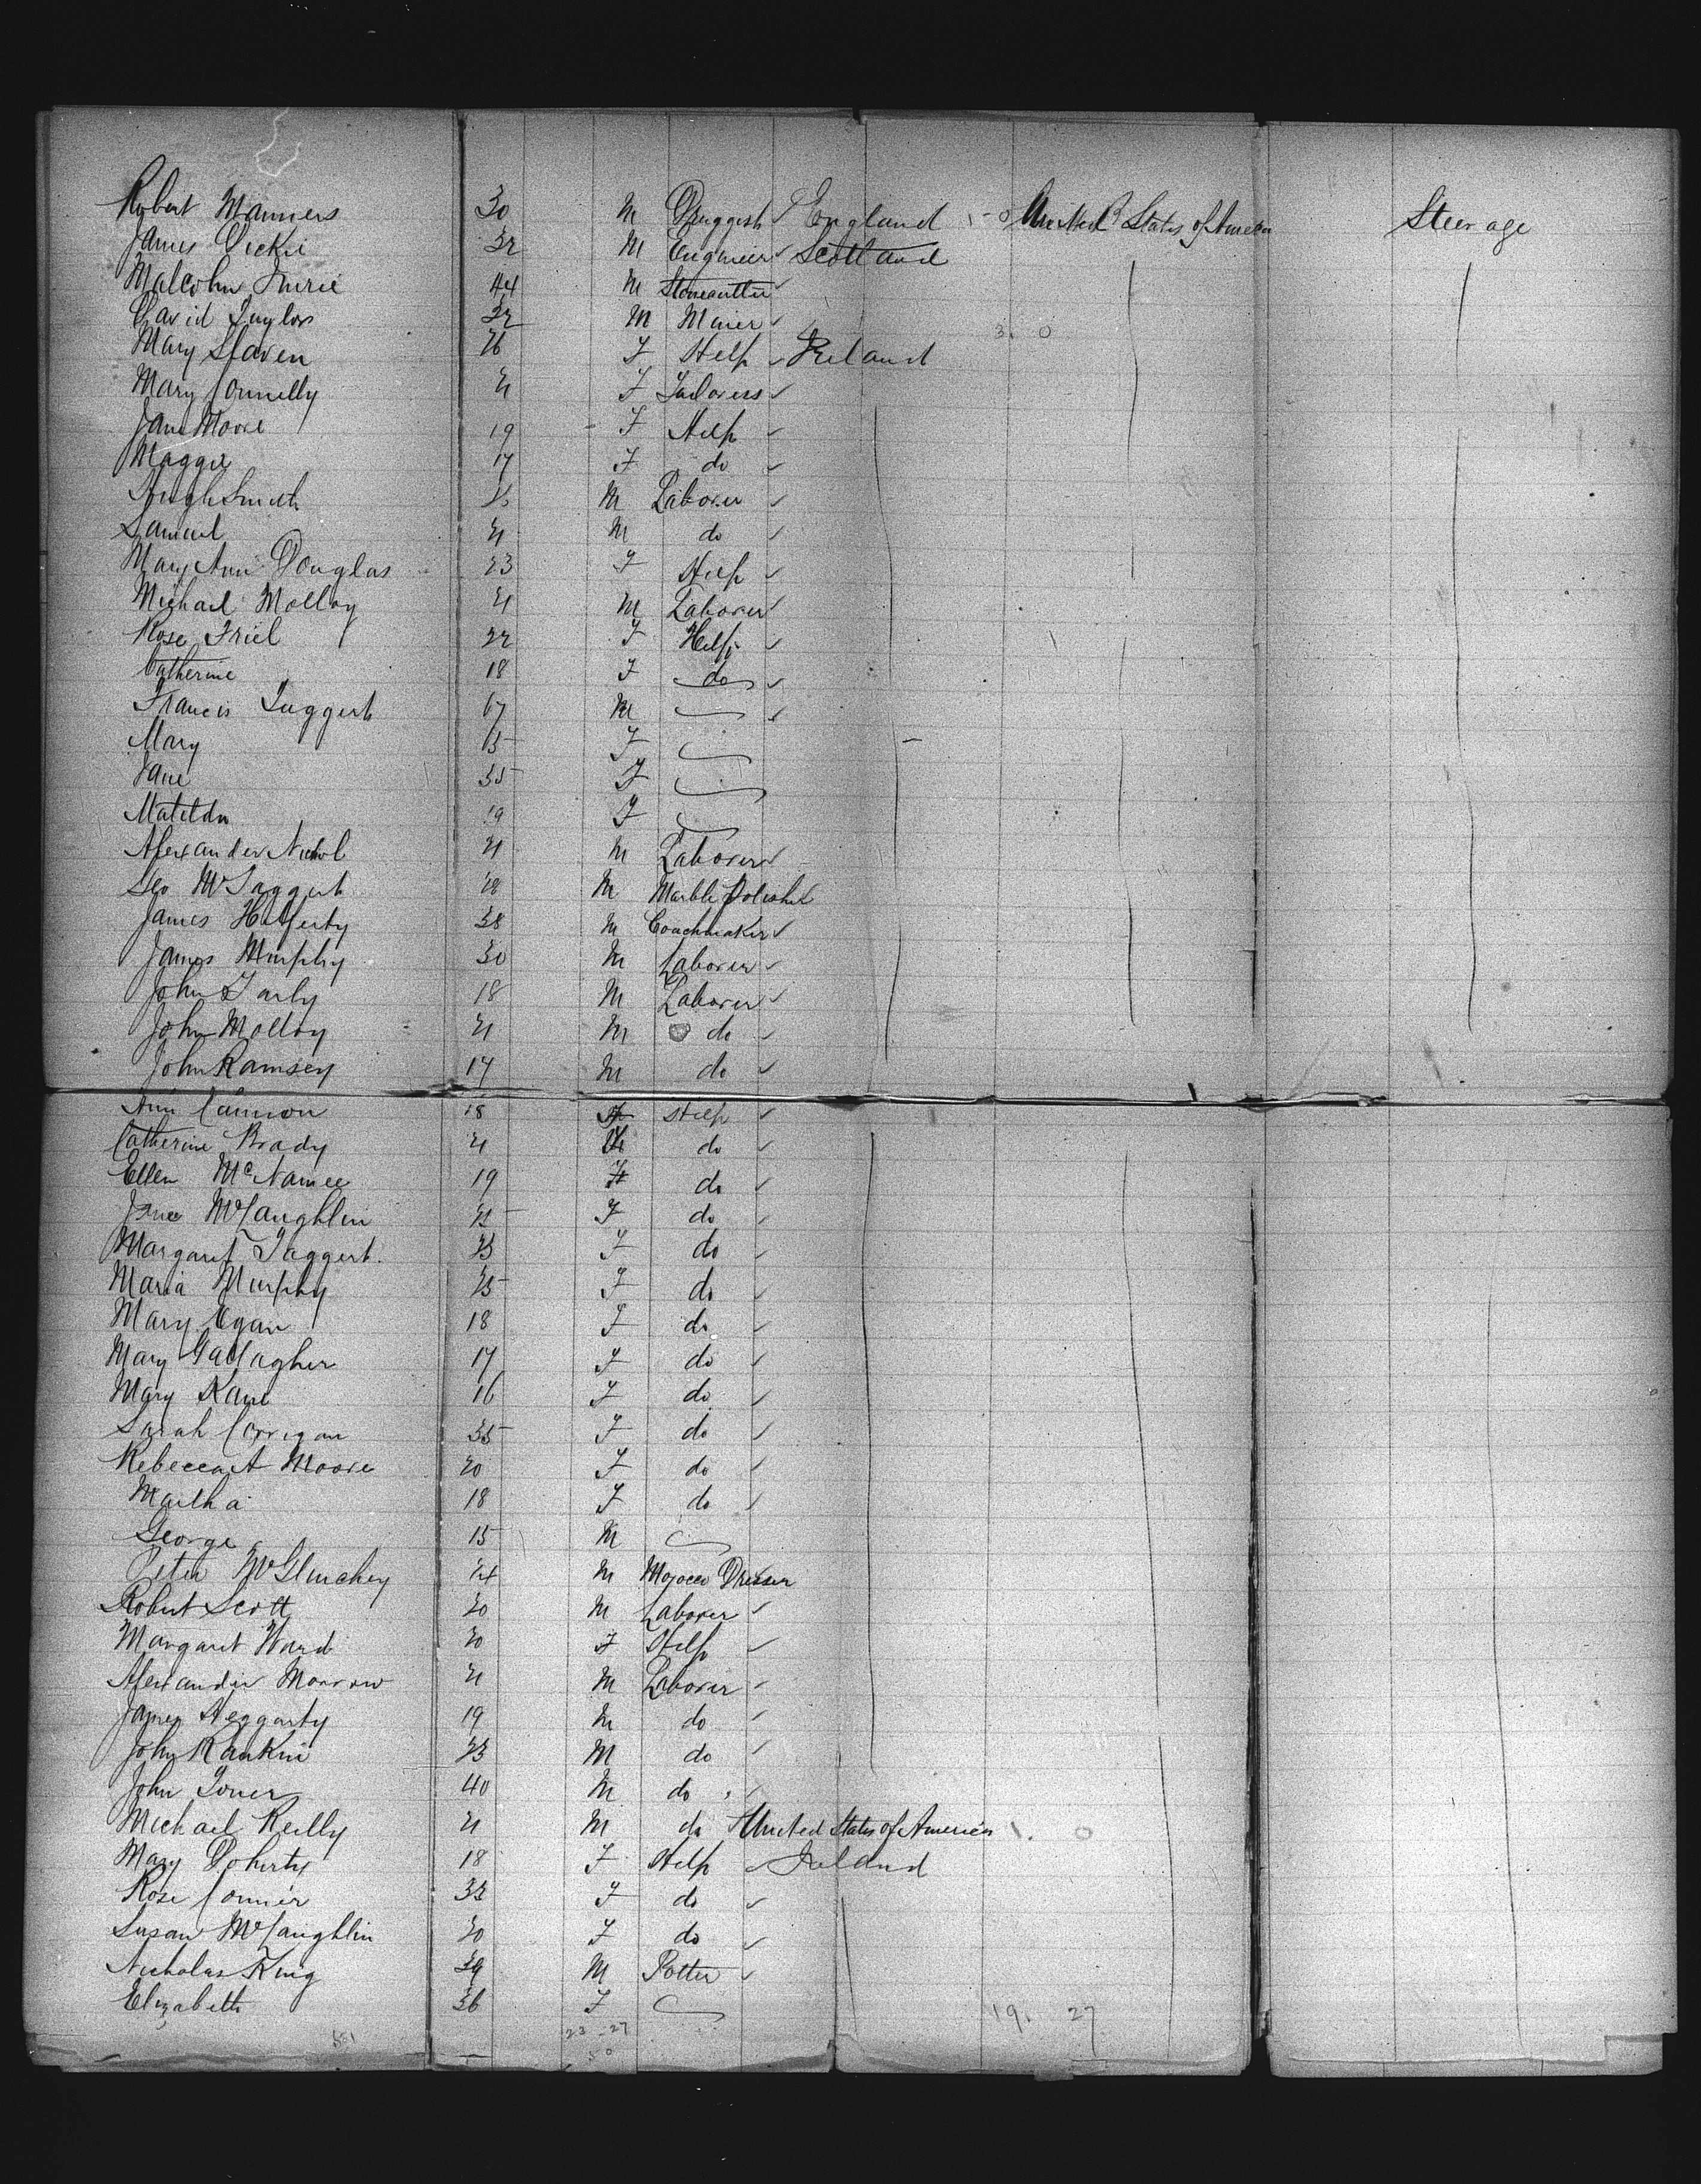 Robert Manners 30 M Druggist England 1 - 0 United States of America Steerage
James Dickie 32 M Engineer Scotland
Malcohm Imrie 44 M Stonecutter
David Taylor 32 M Miner 3. 0
Mary Slaven 26 F Help Ireland
Mary Connelly 21 F Tailoress
Jane Moore 19 F Help
Maggie 17 F do
Hugh Smith M Laborer
Samuel 21 M do
Mary Ann Douglas 23 F Help
Michael Molloy 21 M Laborer
Rose Friel 22 F Help
Catherine 18 F do
Francis Taggert 67 M
Mary F
Jane 35 F
Matilda 19 F
Alexander Nichol 21 M Laborer
Geo McTaggert 28 M Marble Polisher
James Hafferty 38 M Coachmaker
James Murphy 30 M Laborer
John Early 18 M Laborer
John Molloy 21 M do
John Ramsey 17 M do
Ann Cannon 18 F Help
Catherine Brady 21 F do
Ellen McNamee 19 F do
Jane McLaughlin F do
Margaret Taggert F do
Maria Murphy 25 F do
Mary Egan 18 F do
Mary Gallagher 17 F do
Mary Kane 16 F do
Sarah Corrigan 35 F do
Rebecca A Moore 20 F do
Martha 18 F do
George 15 M
Peter McGlinchey 24 M Morocco Dresser
Robert Scott 20 M Laborer
Margaret Ward 20 F Help
Alexander Morrow 21 M Laborer
James Heggarty 19 M do
John Rankin 23 M do
John Toner 40 M do
Michael Reilly 21 M do United States of America 1. 0
Mary Doherty 18 F Help Ireland
Rose Conner 33 F do
Susan McLaughlin 20 F do
Nicholas King 39 M Potter
Elizabeth 36 F 19. 27
23 - 27
50